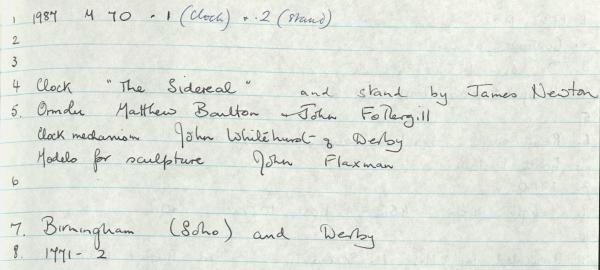 1 1987 M 70 . 1 (clock) + . 2 (stand)
2
3
4 Clock "The Sidereal" and stand by James Newton
5. Ormolu Matthew Boulton - John Fothergill
Clock mechanism John Whitehurst of Derby
Models for sculpture John Flaxman
6
7. Birmingham (Soho) and Derby
8. 1771 - 2